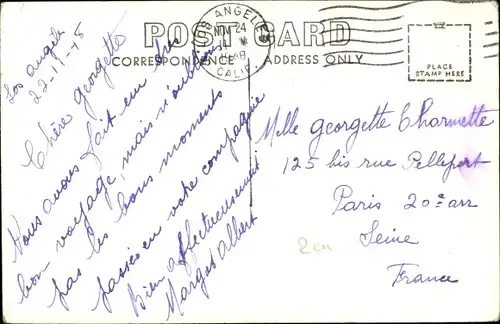 POST CARD
CORRESPONDENCE ADDRESS ONLY
ANGELES
NOV 24
CALIF.
PLACE
STAMP HERE
Los Angeles
22-11-48
Chère georgette
Nous avons fait un très
bon voyage, mais n'oublions
pas les bons moments
passés en votre compagnie
Bien affectueusement
Margot Albert
Mlle georgette Charmette
125 bis rue Pelleport
Paris 20e arr
Seine
France